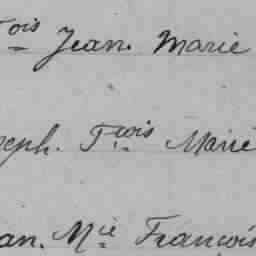 ois Jean. Marie
seph. Fcois Marie
an. Mie François